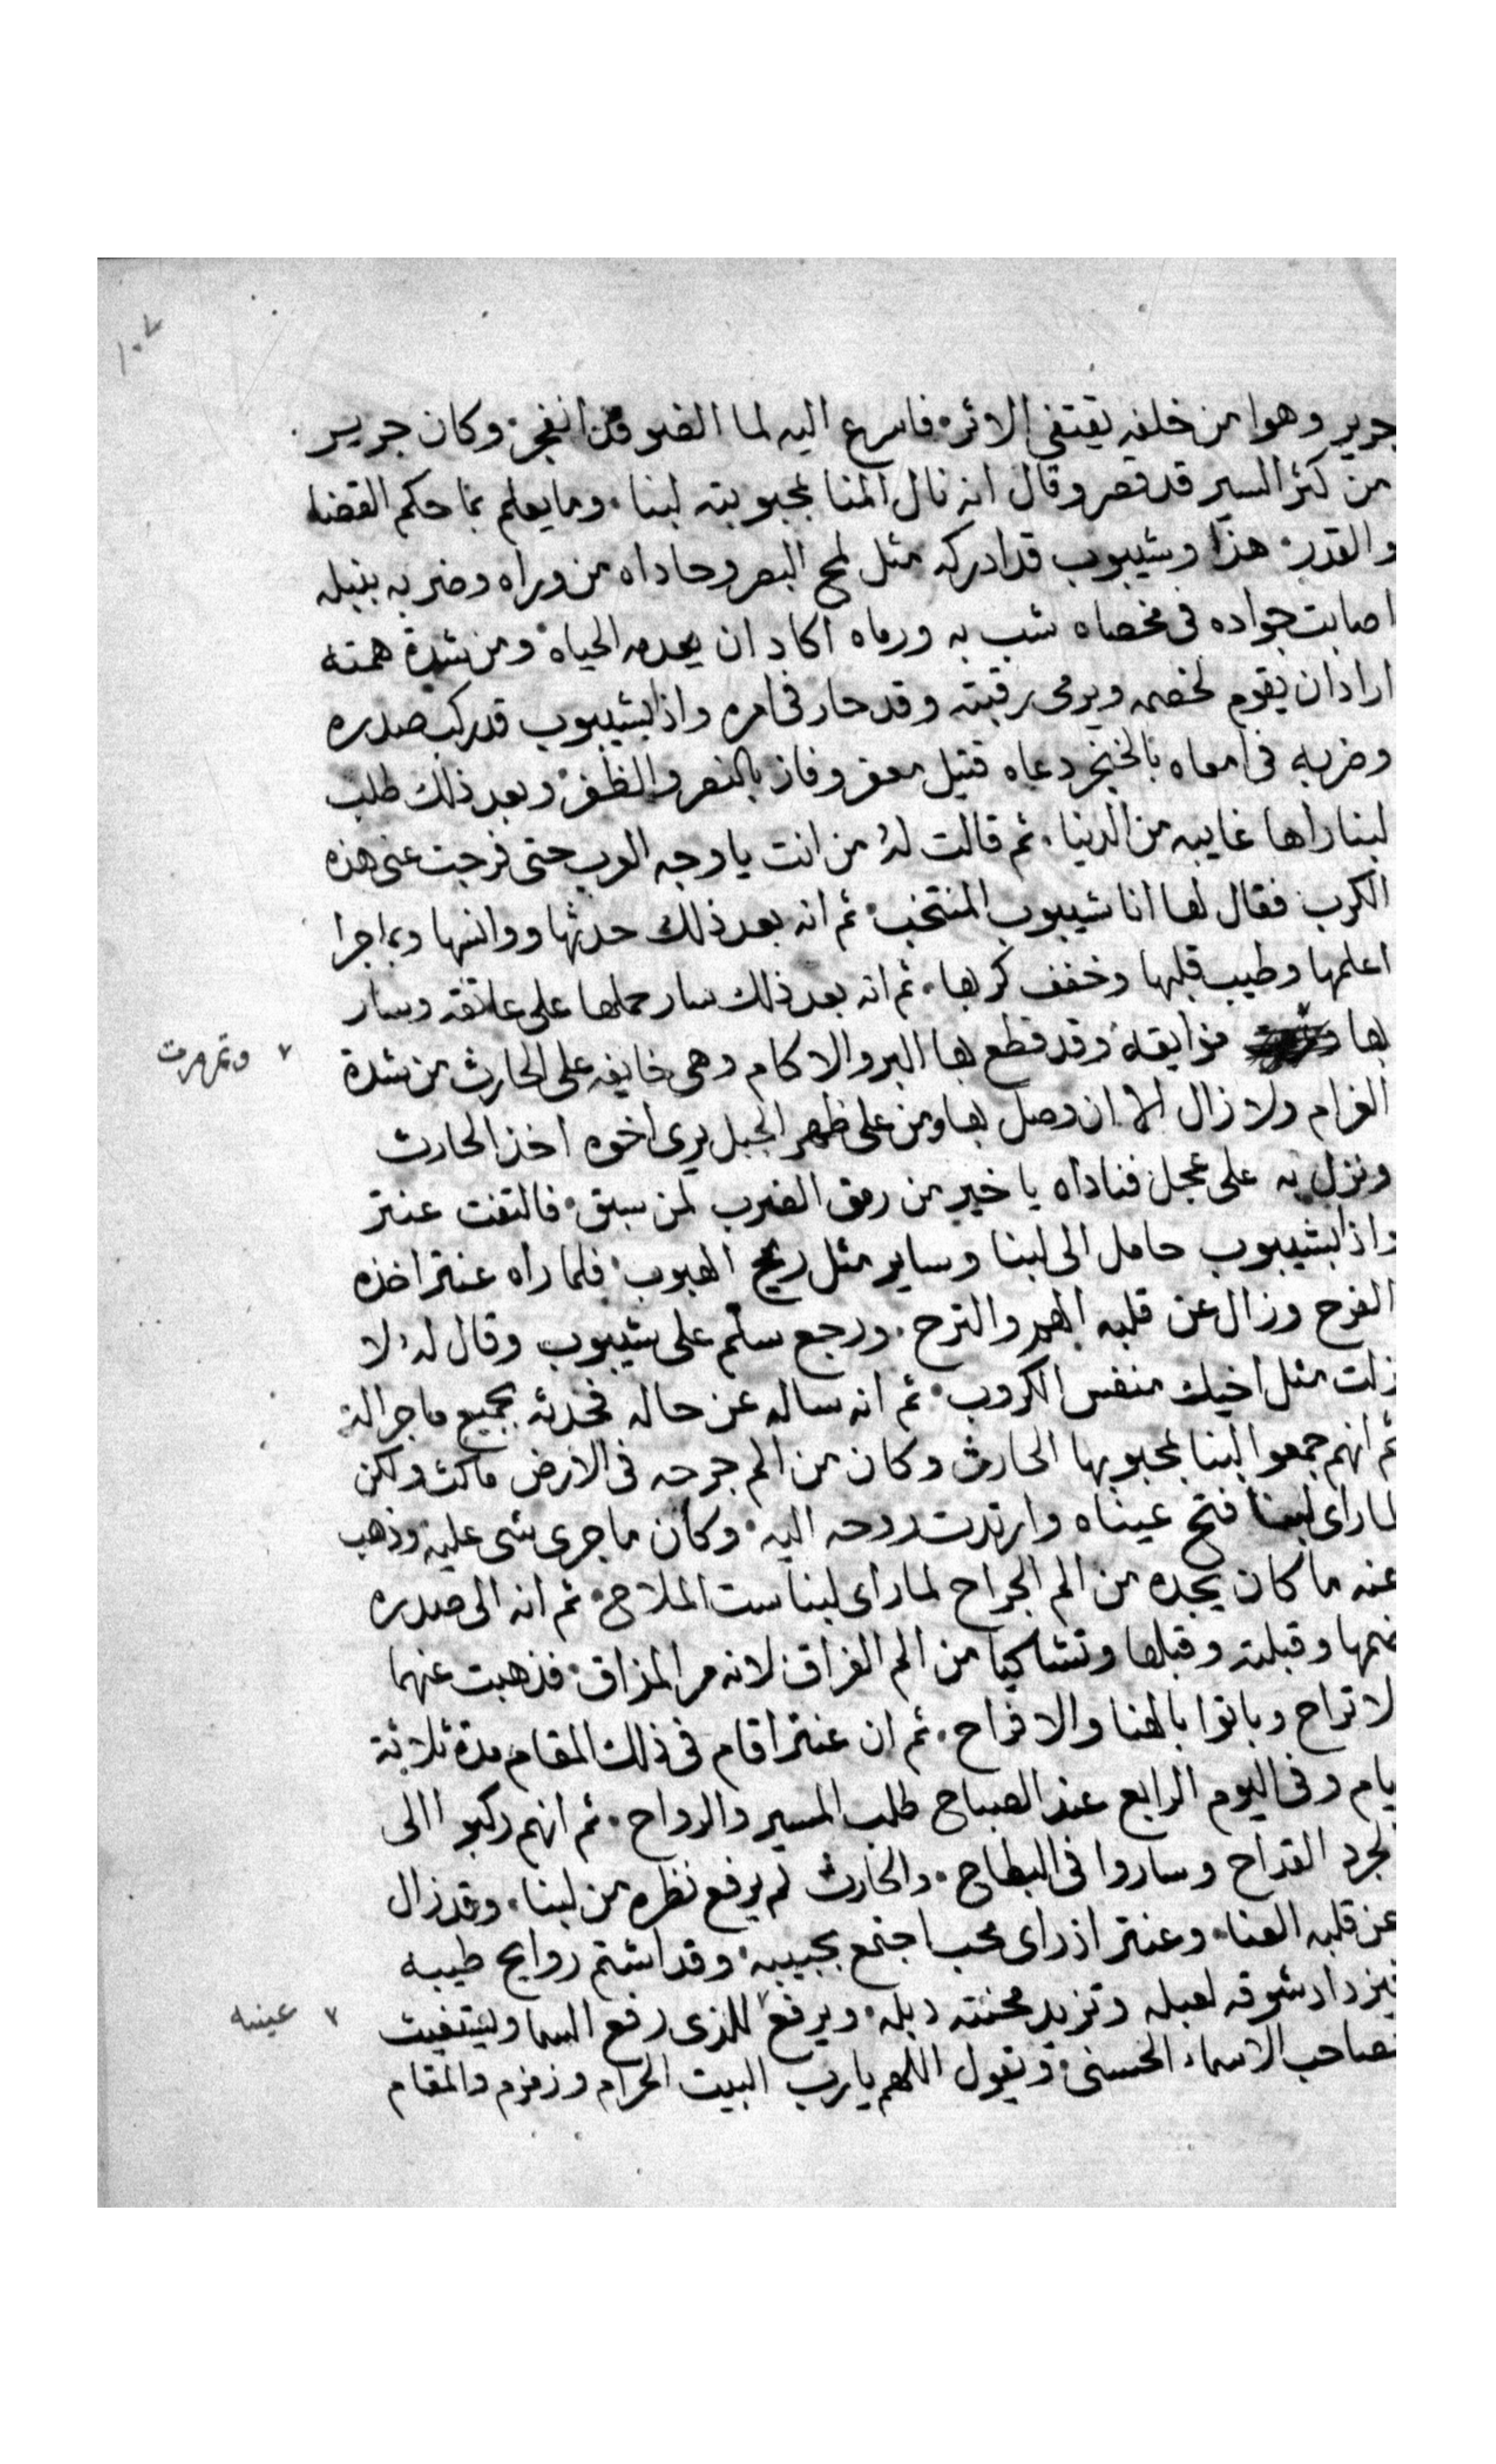 ١٠٧
جرير وهوا من خلفه يقتفي الاثر فاسرع اليه لما الضو قد انفجر وكان جرير
من كثر السير قد قصر وقال انه نال المنا بمحبوبته لبنا وما يعلم بما حكم القضا
والقدر هذا وشيبوب قد ادركه مثل لمح البصر وحاداه من وراه وضربه بنبله
اصابت جواده في مخصاه شب به ورماه اكاد ان يعدمه الحياه ومن شدة همته
اراد ان يقوم لخصمه ويرمى رقبته وقد حار فى امره واذا بشيبوب قد ركب صدره
وضربه فى امعاه بالخنجر دعاه قتيل معفر وفاز بالنصر والظفر وبعد ذلك طلب
لبنا راها غايبه من الدنيا ثم قالت له من انت يا وجه العرب حتى فرجت عنى هذه
الكرب فقال لها انا شيبوب المنتخب ثم انه بعد ذلك حدثها ووانسها وبما جرا
اعلمها وطيب قلبها وخفف كربها ثم انه بعد ذلك سار حملها على عاتقه وسار
بها فزايقه وقد قطع بها البر والاكام وهى خايفه على الحارث من شدة
وتمرمرت
الغرام ولا زال الا ان وصل بها ومن على ظهر الجبل يرى اخوه اخذ الحارث
ونزل به على عجل فناداه يا خير من رمق الضرب لمن سبق فالتفت عنتر
واذا بشيبوب حامل الى لبنا وساير مثل ريح الهبوب فلما راه عنتر اخذه
الفرح وزال عن قلبه الهم والترح ورجع سلم على شيبوب وقال له لا
زلت مثل اخيك منفس الكروب ثم انه ساله عن حاله فحدثه بجميع ما جرا له
ثم انهم جمعوا لبنا بمحبوبها الحارث وكان من الم جرحه فى الارض ماكث ولكن
لما راى لبنا فتح عيناه وارتدت روحه اليه وكان ما جرى شى عليه وذهب
عنه ما كان يجده من الم الجراح لما راى لبنا ست الملاح ثم انه الى صدره
ضمها وقبلته وقبلها وتشاكيا من الم الفراق لانه مر المذاق فذهبت عنهما
لاتراح وباتوا بالهنا والافراح ثم ان عنتر اقام فى ذلك المقام مدة ثلاثة
يام وفى اليوم الرابع عند الصباح طلب المسير والرواح ثم انهم ركبوا الى
لجرد القداح وساروا فى البطاح والحارث لم يرفع نظره من لبنا وقد زال
عن قلبه العنا وعنتر اذ راى محب اجتمع بحبيبه وقد اشتم روايح طيبه
يزداد شوقه لعبله وتزيد محنته وبله ويرفع للذى رفع السما ويستغيث
عينه
بصاحب الاسماء الحسنى ويقول اللهم يارب البيت الحرام وزمزم والمقام